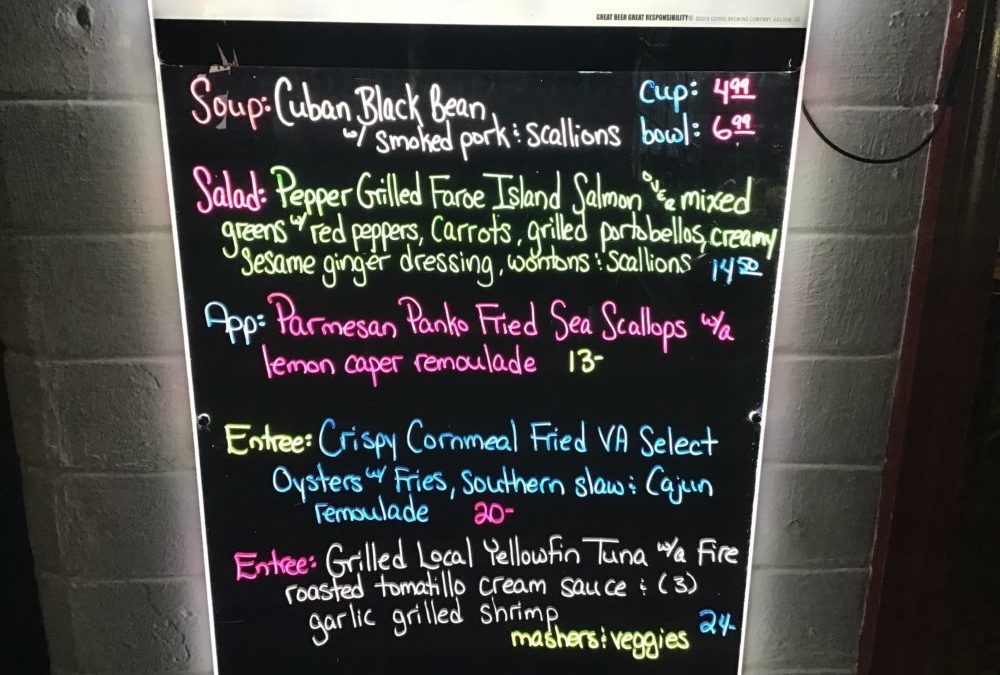 GREAT BEER GREAT RESPONSIBILITY® ©2019 COORS BREWING COMPANY, GOLDEN, CO
Soup: Cuban Black Bean Cup: 4.99
w/ smoked pork & scallions bowl: 6.99
Salad: Pepper Grilled Faroe Island Salmon over mixed
greens w/ red peppers, carrots, grilled portobellos, creamy
sesame ginger dressing, wontons & scallions 14.50
App: Parmesan Panko Fried Sea Scallops w/a
lemon caper remoulade 13-
Entree: Crispy Cornmeal Fried VA Select
Oysters w/ Fries, southern slaw & Cajun
remoulade 20-
Entree: Grilled Local Yellowfin Tuna w/a Fire
roasted tomatillo cream sauce & (3)
garlic grilled shrimp
mashers & veggies 24-